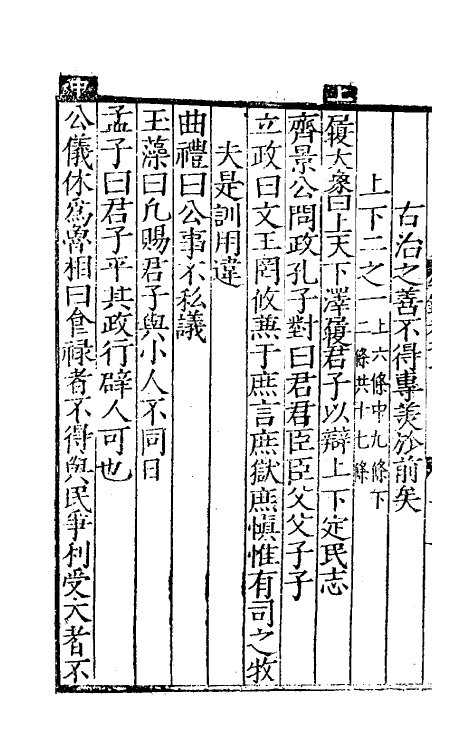 右治之善不得專美於前矣
上下二之一上六條中九條下二條共十七條
上
履大象曰上天下澤履君子以辯上下定民志
齊景公問政孔子對曰君君臣臣父父子子
立政曰文王罔攸蕪于庶言庶獄庶慎惟有司之牧
夫是訓用違
曲禮曰公事不私議
玉藻曰凡賜君子與小人不同日
孟子曰君子平其政行辟人可也
中
公儀休爲魯相曰食禄者不得與民爭利受大者不